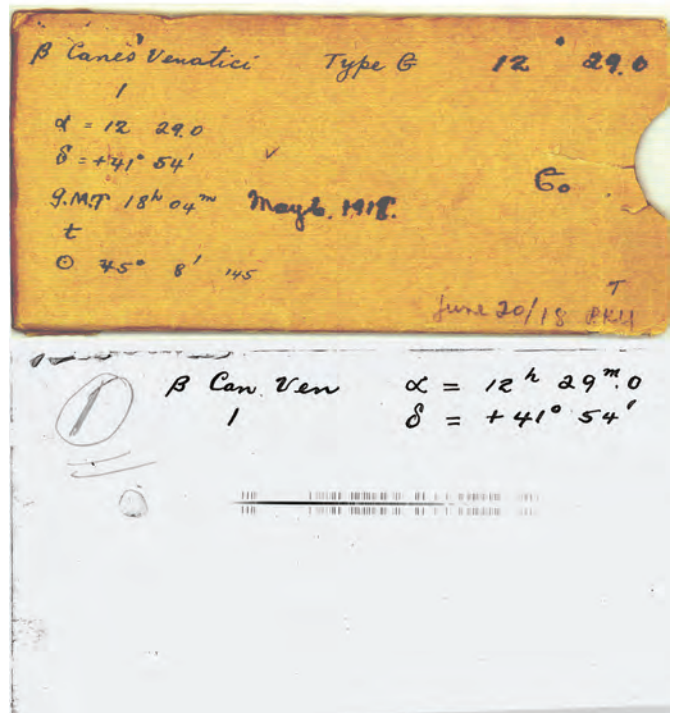 β Canes Venatici Type G 12 29.0
1
α = 12 29.0
δ = +41° 54'
G.M.T 18h 04m May 6, 1918.
G0
t
⊙ 45° 8' 145
T
June 20/18
β Can. Ven α = 12h 29m.0
1 δ = +41° 54'
1